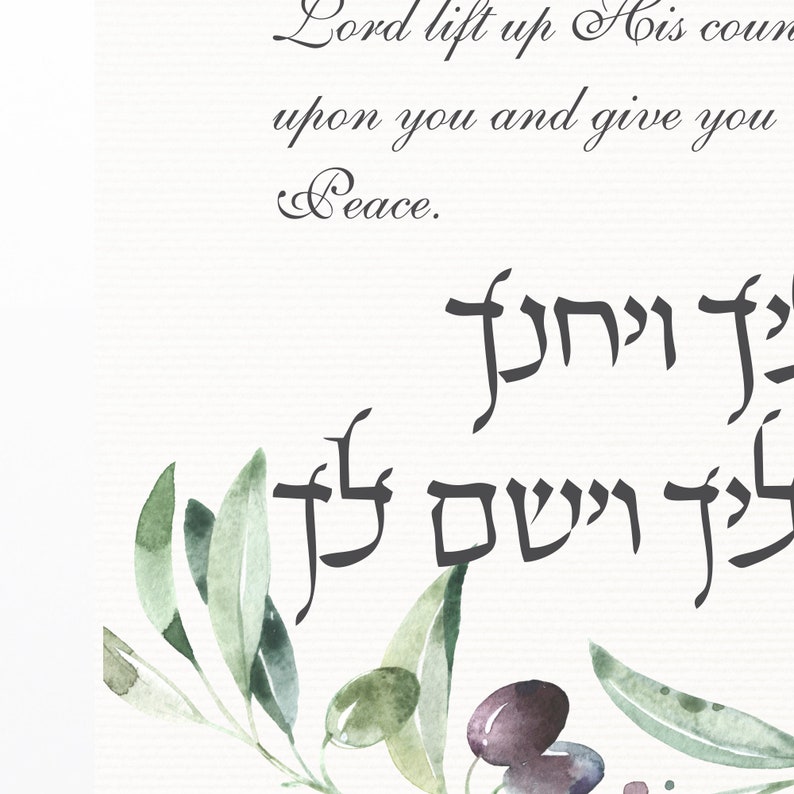 Lord lift up His coun
upon you and give you
Peace.
ליך ויחנך
ליך וישם לך